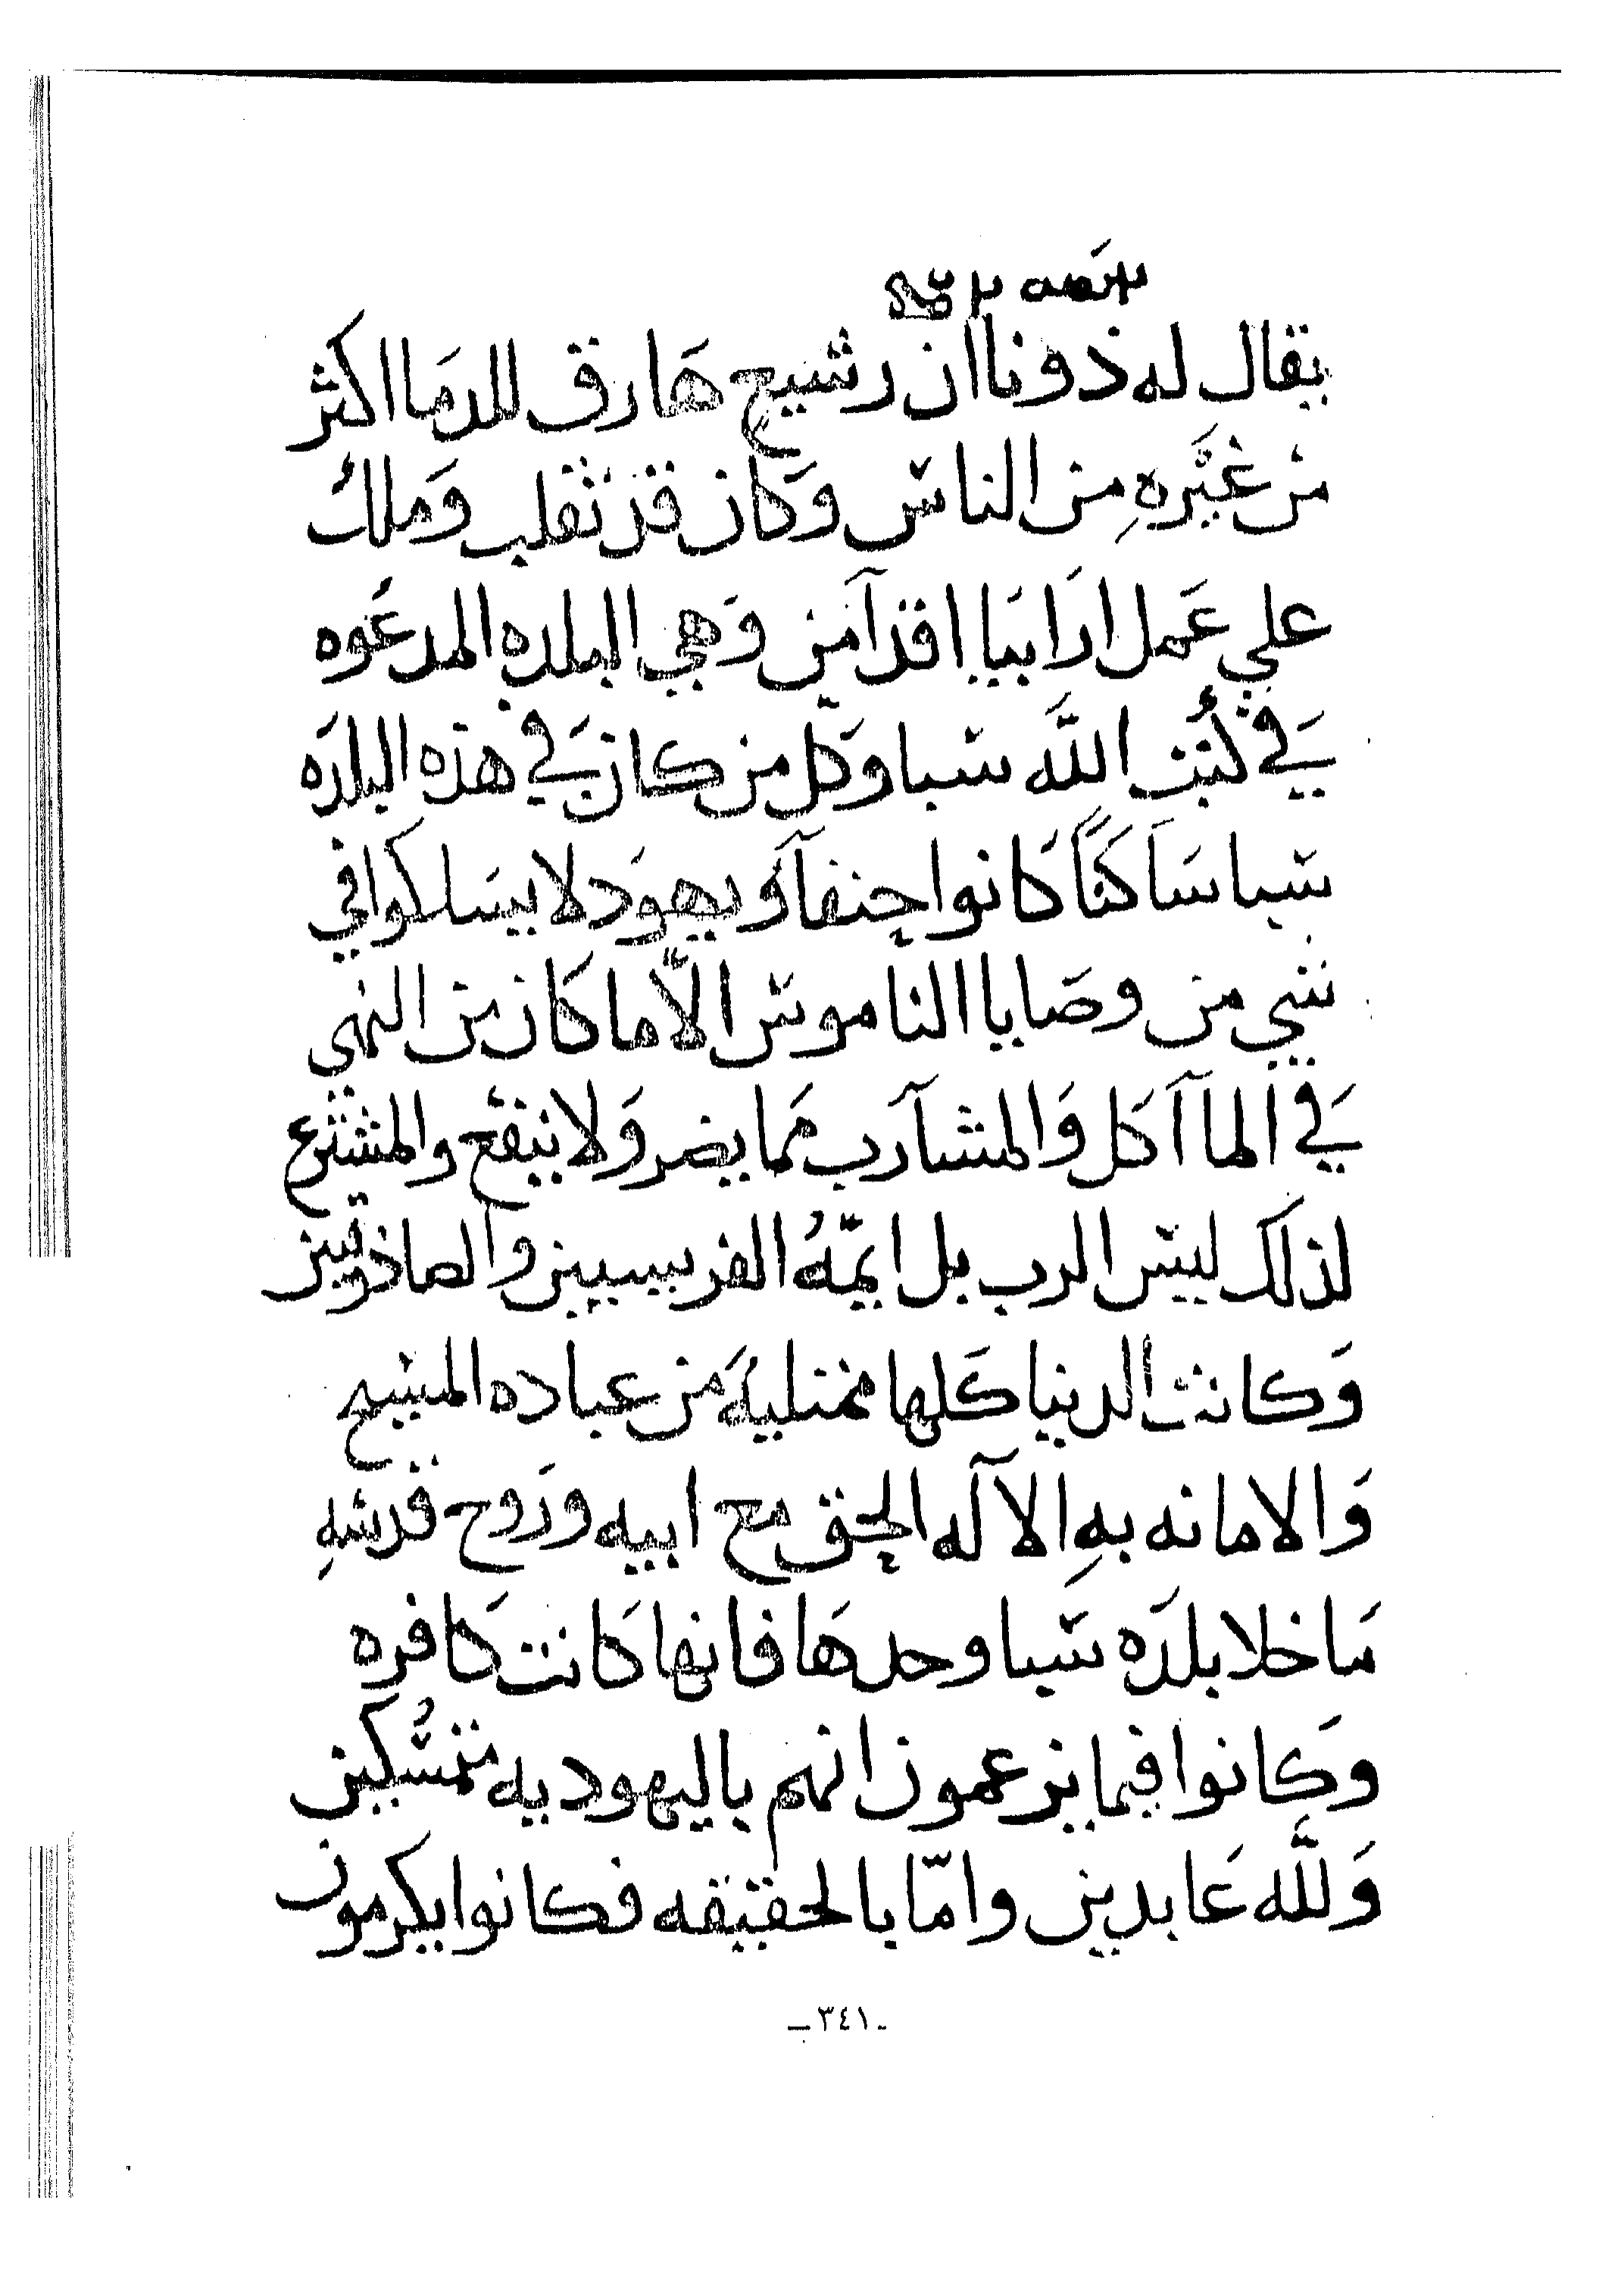 يقال له ذوناان رشيع هارق للدما اكثر
من غيَره مِن الناس وَكان قد ثقلب وَملك
علي عَمل ارَابيَا اقدآمَن وَهي البلده المدعُوه
يَفي كُتب اللَّه سبا وَكل من كان يَفي هذه البلدَه
سبا سَاكنًا كانوا حنفآوَ يهوَد لا يسَلكوا في
شي من وصَايا الناموس الّا ما كان من النهي
يَفي المآ آكل وَالمشآرب مَما يضر وَلا ينفع والمشترع
لذلك ليس الرب بل ايمّهُ الفريسيين والصاذوقيين
وَكانت الدنيا كَلها ممتليهَ من عباده المسيح
وَالامانه بهِ الالآه الحق مع ابيه ورَوح قدسهِ
مَا خلا بلدَه سَبا وحدهَا فانها كانت كافره
وكَانوا فيما يزعمون انهم باليهوديه متمسُكين
وَللَّه عَابدين وامّا بالحقيقه فكانوا يكرمون
-٣٤١-